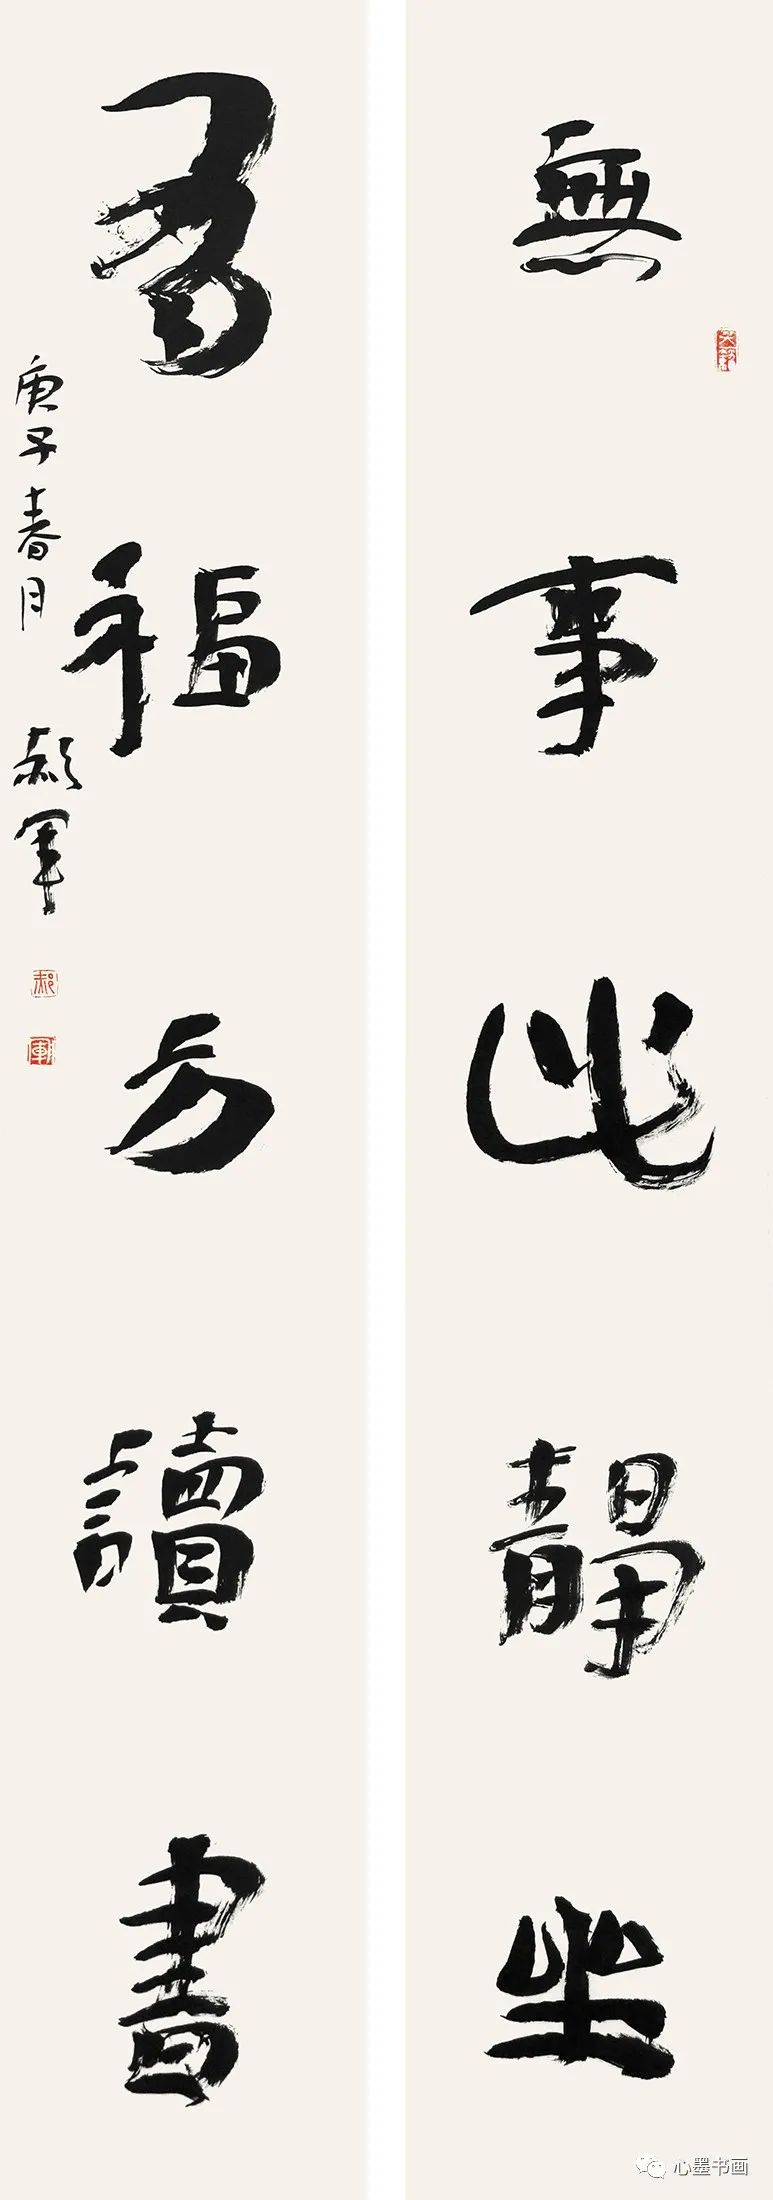 無事此靜坐
有福方讀書
庚子春月 郝军
郝
軍
心墨书画